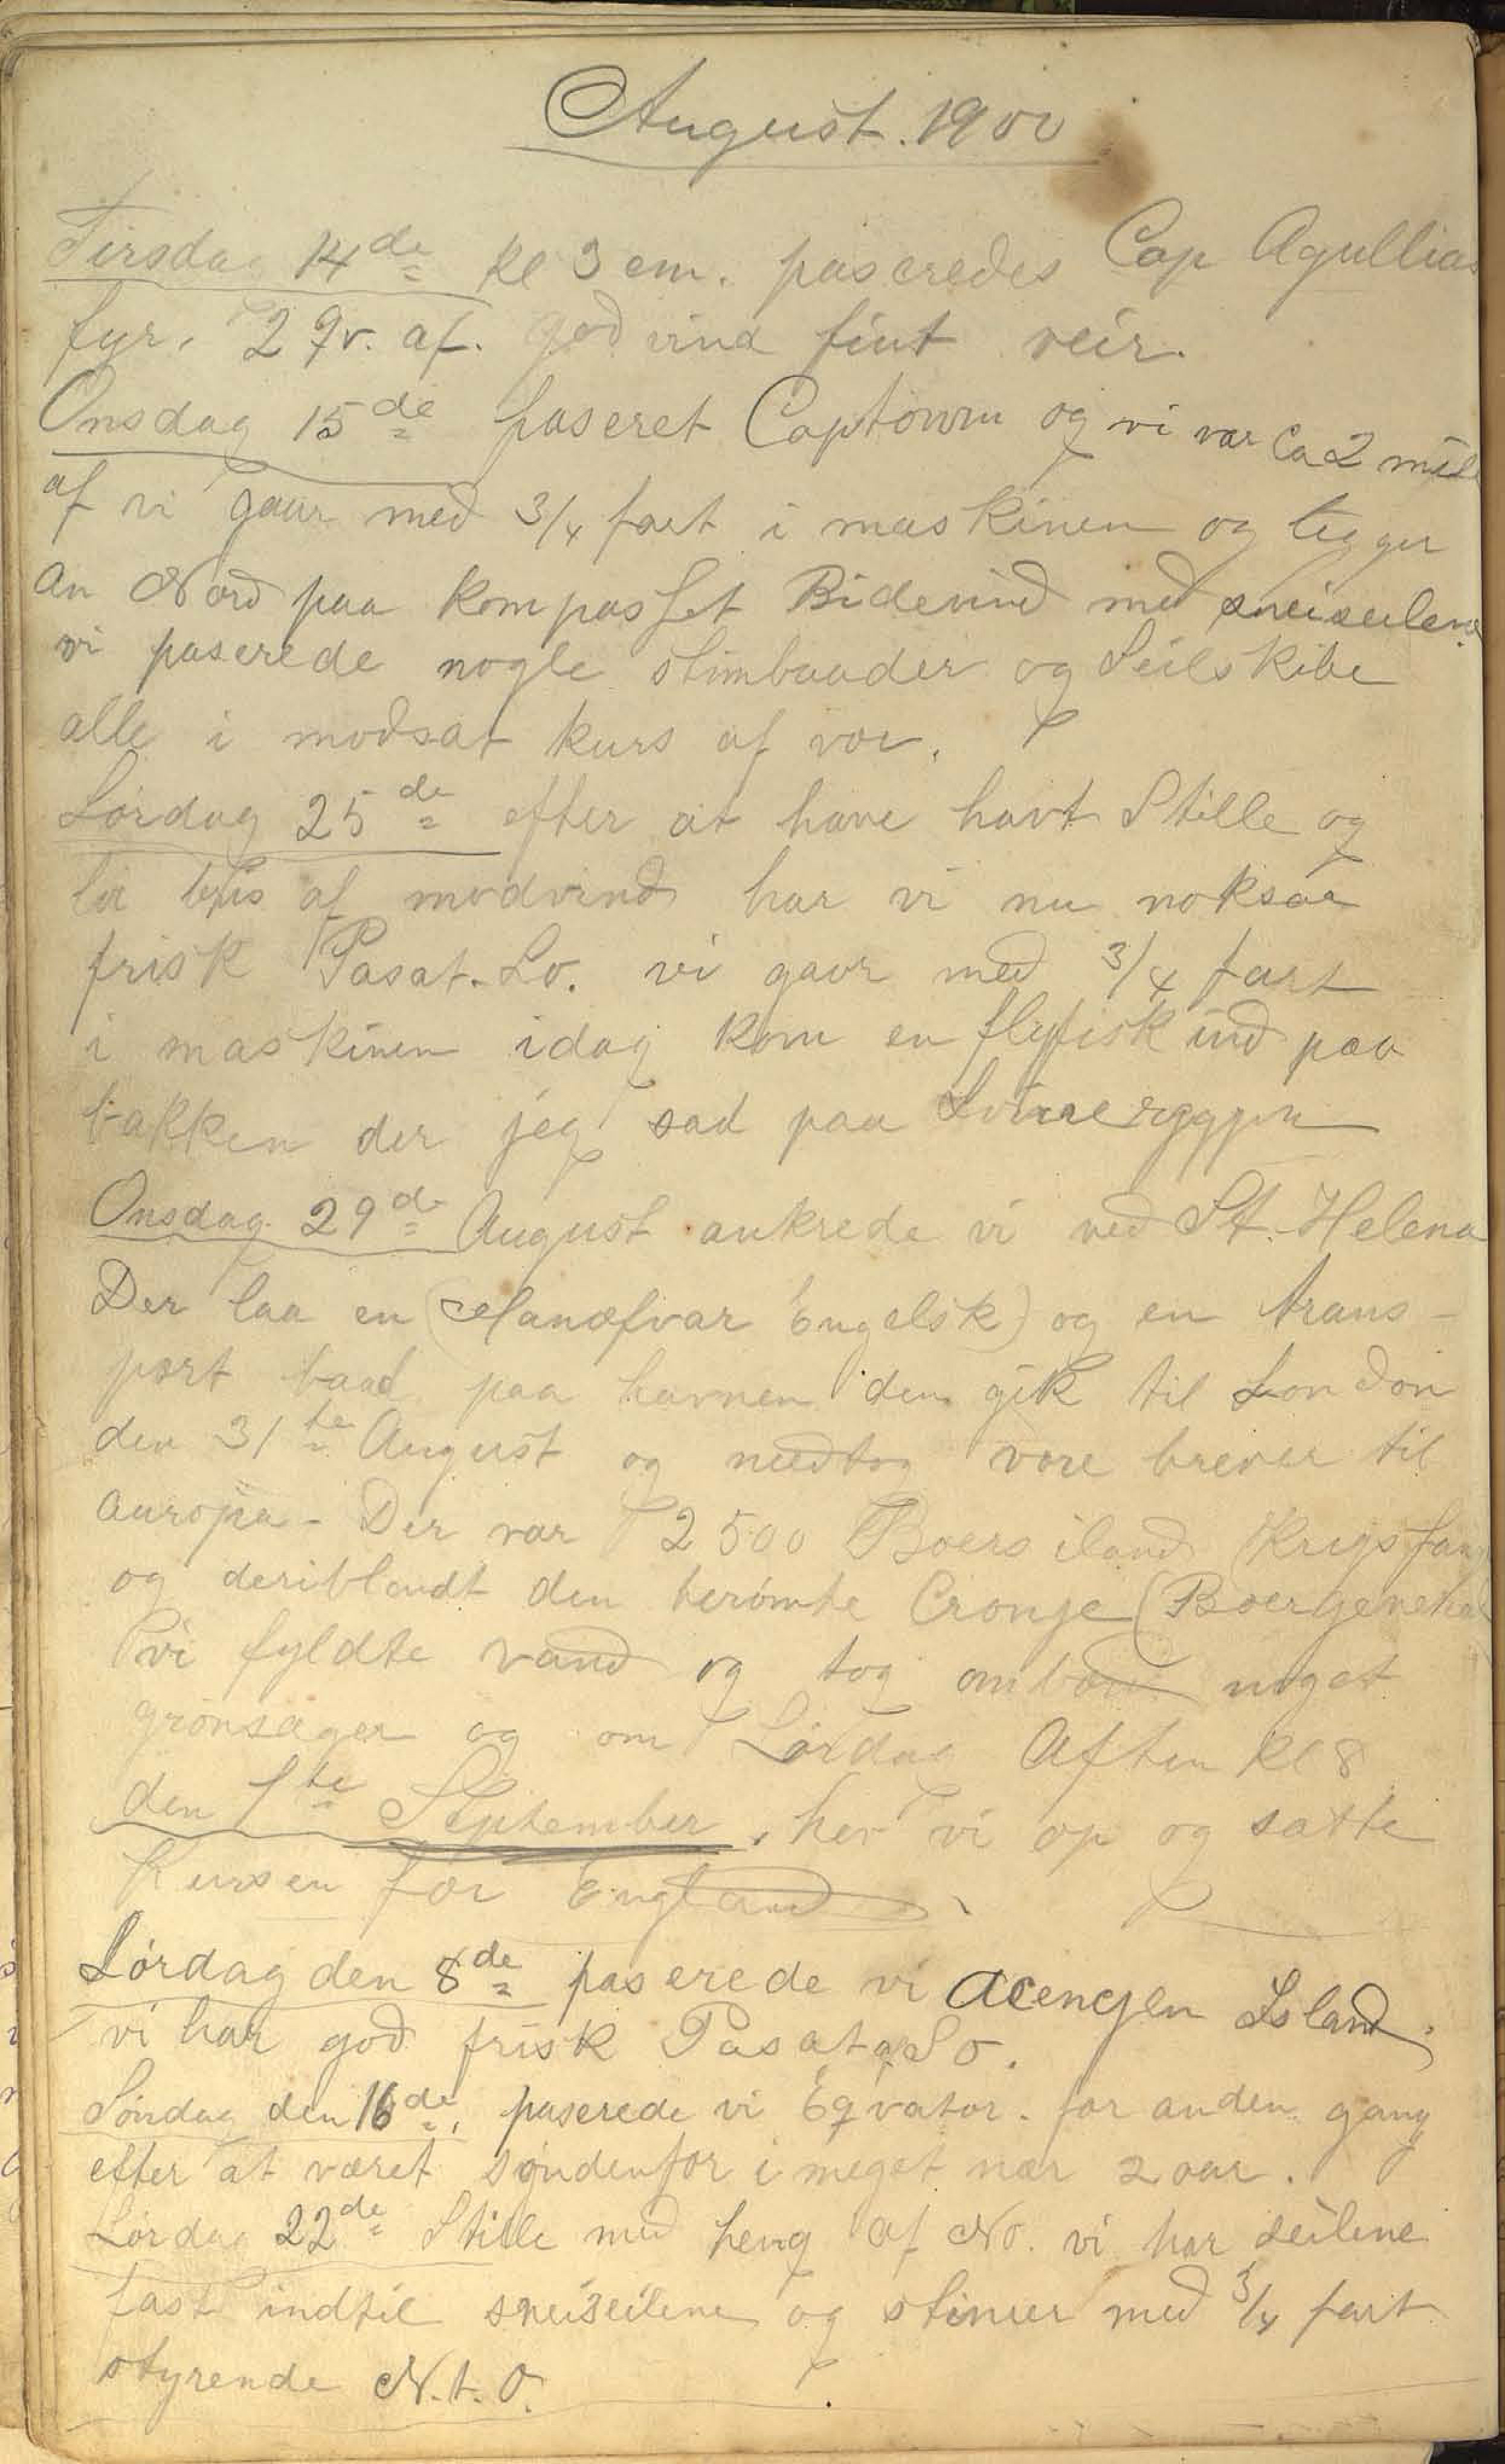 August. 1900
Tirsdag 14de kl 3 em. paseredes Cap Agullias
fyr. 2 qv. af. god vind fint veir.
Onsdag 15de paseret Captown og vi var Ca 2 mile
af vi gaar med 3/4 fart i maskinen og ligger
an Nord paa kompasset Bidevind med sneiseilene
vi paserede nogle stimbaader og Seilskibe
alle i modsat kurs af vor.
Lørdag 25de efter at have havt Stille og
af modvind har vi nu noksaa
frisk Pasat. So. vi gaar med 3/4 fart
i maskinen idag kom en flyfisk ind paa
bakken der jeg sad paa Svineryggen
Onsdag 29de August ankrede vi ved St. Helena
Der laa en (Manofvar Engelsk) og en trans-
port baad paa havnen den gik til London
den 31te August og medtog vore brever til
auropa - Der var 2500 Boers iland Krigsfang
og deriblandt den berømte Cronje (Boergeneral
vi fyldte vand og tog ombord noget
grønsager og om Lørdag Aften kl 8
den 1te September, hev vi op og satte
Kursen for England.
Lørdag den 8de paserede vi Acencjen Island.
vi har god frisk Pasat af So.
Søndag den 16de, paserede vi Eqvator. for anden gang
efter at været søndenfor i meget nær 2 aar.
Lørdag 22de Stille med heng af No. vi har seilene
fast indtil sneiseilene og stimer med 3/4 fart
styrende N.t.O.